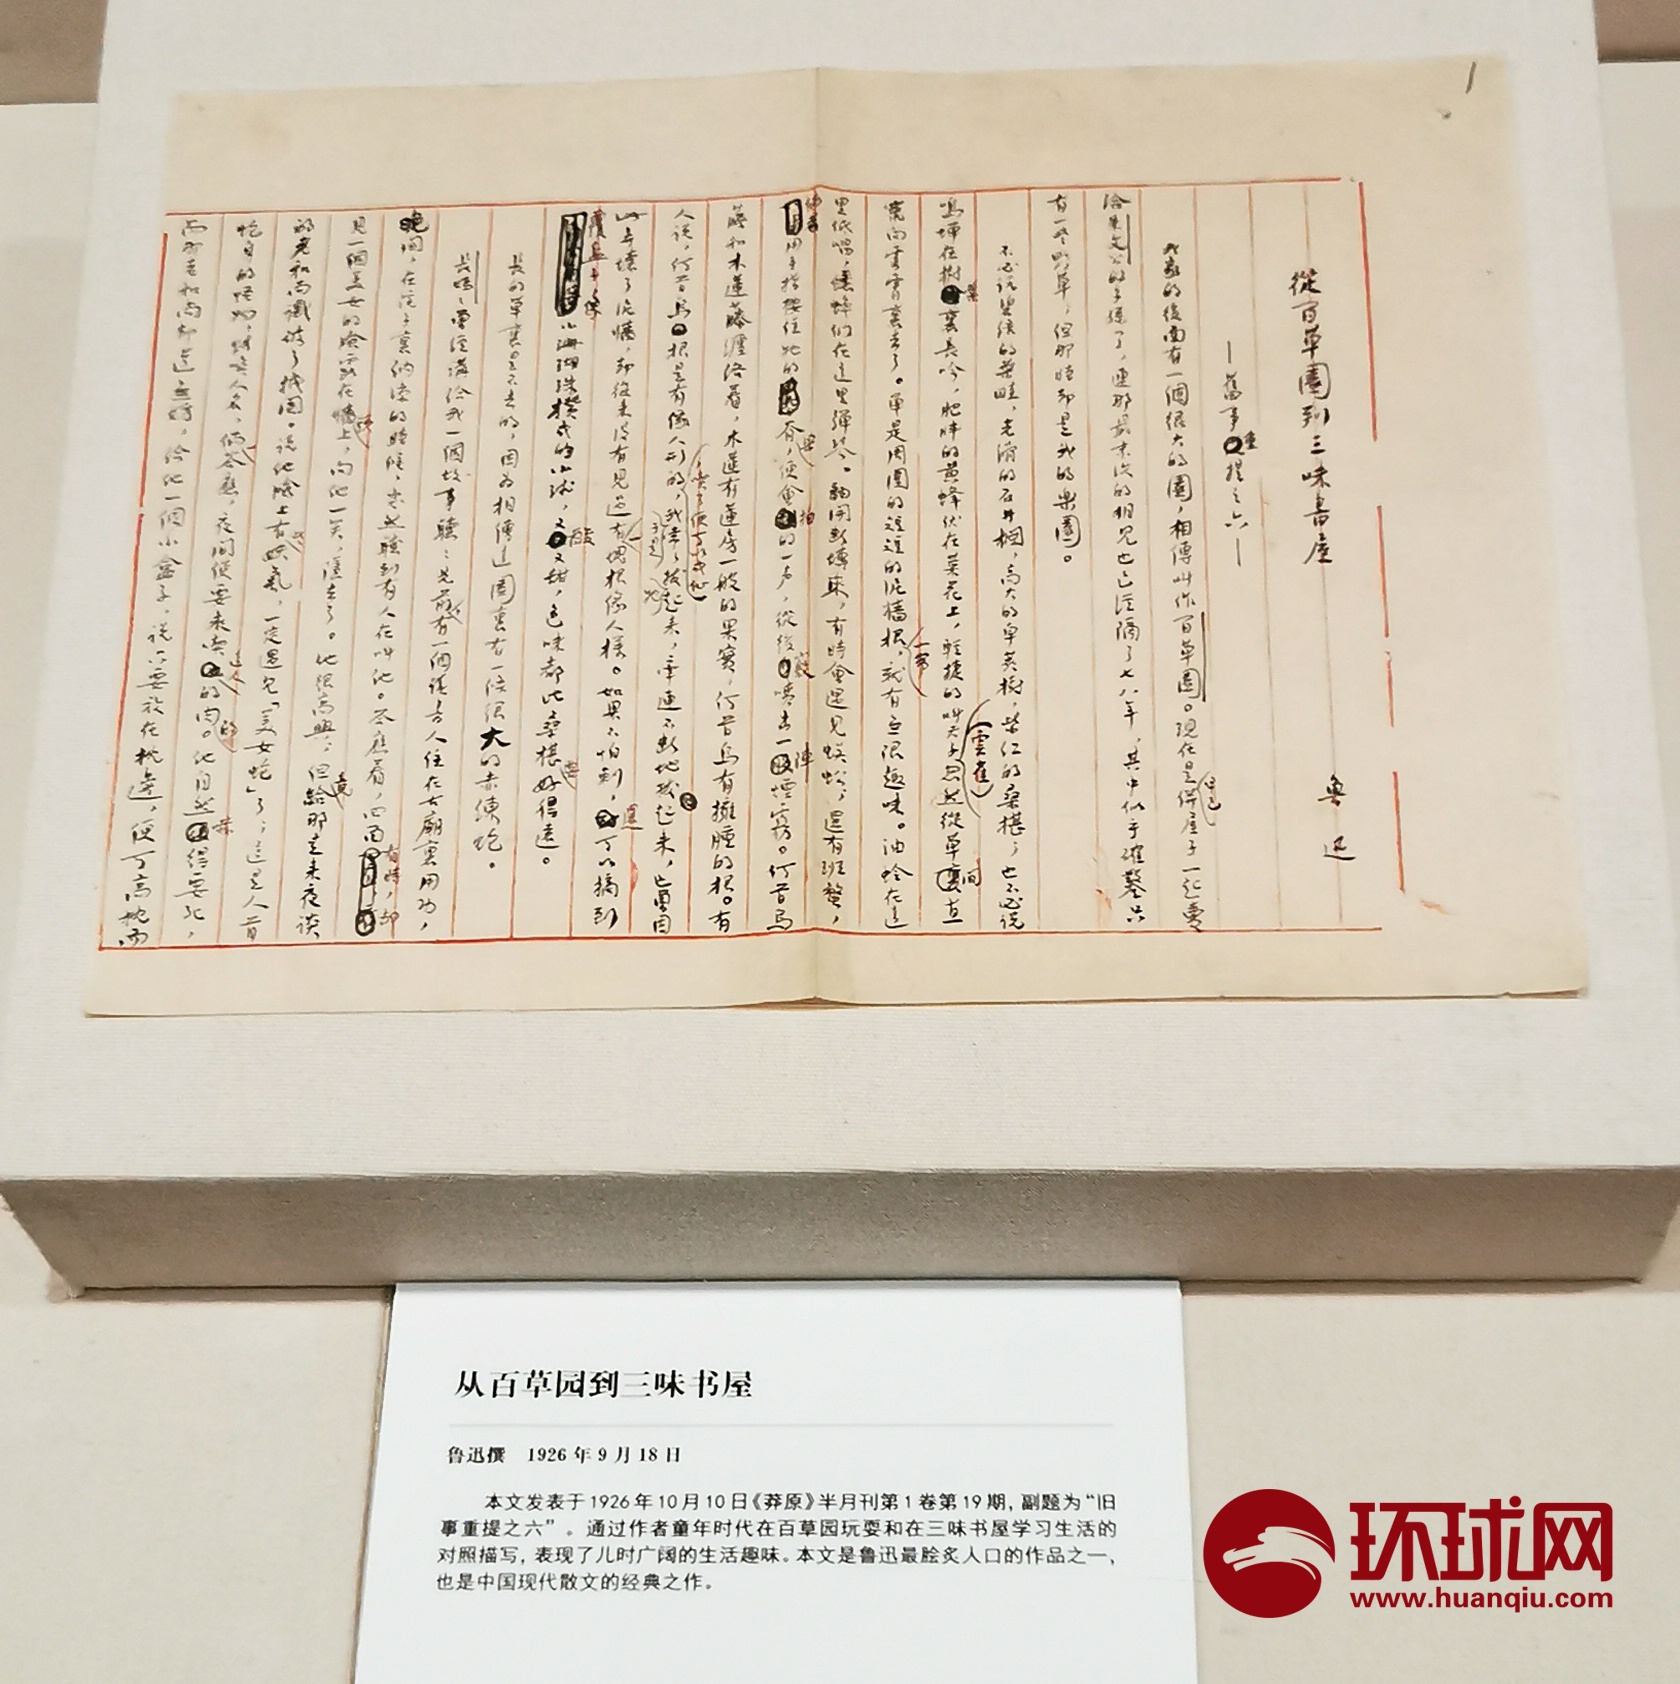 1
從百草園到三味書屋
魯迅
—舊事重提之六—
我家的後面有一個很大的園,相傳叫作百草園。現在是早已併屋子一起賣
給朱文公的子孫了,連那最末次的相見也已經隔了七八年,其中似乎確鑿只
有一些野草,但那時卻是我的樂園。
不必說碧綠的菜畦,光滑的石井欄,高大的皁莢樹,紫红的桑椹;也不必說
鳴蟬在樹葉裏長吟,肥胖的黃蜂伏在菜花上,輕捷的叫天子(雲雀)忽然從草間直
竄向雲霄裏去了。單是周圍的短短的泥牆根一帶,就有無限趣味。油蛉在這
里低唱,蟋蟀們在這里彈琴。翻開斷塼來,有時會遇見蜈蚣;還有斑蝥,
倘若用手指按住牠的脊梁,便會拍的一聲,從後竅噴出一陣煙霧。何首烏
藤和木蓮藤纏絡着,木蓮有蓮房一般的果實,何首烏有擁腫的根。有
人說,何首烏根是有像人形的,喫了便可以成仙,我於是常常拔牠起來,牽連不斷地拔起來,也曾因
此弄壞了泥牆,卻從來沒有見過有一塊根像人樣。如果不怕刺,還可以摘到
覆盆子,像小珊瑚珠攢成的小球,又酸又甜,色味都比桑椹要好得遠。
長的草裏是不去的,因為相傳這園裏有一條很大的赤練蛇。
長媽媽曾經講給我一個故事聽:先前,有一個讀書人住在古廟裏用功,
晚間,在院子裏納涼的時候,突然聽到有人在叫他。答應着,四面看時,卻
見一個美女的臉露在牆頭上,向他一笑,隱去了。他很高興;但竟給那走來夜談
的老和尚識破了機關。說他臉上有些妖氣,一定遇見「美女蛇」了;這是人首
蛇身的怪物,能喚人名,倘一答應,夜間便要來喫這人的肉的。他自然嚇得要死,
而那老和尚卻道無妨,給他一個小盒子,說只要放在枕邊,便可高枕而
从百草园到三味书屋
鲁迅撰 1926年9月18日
本文发表于1926年10月10日《莽原》半月刊第1卷第19期,副题为“旧
事重提之六”。通过作者童年时代在百草园玩耍和在三味书屋学习生活的
对照描写,表现了儿时广阔的生活趣味。本文是鲁迅最脍炙人口的作品之一,
也是中国现代散文的经典之作。
环球网
www.huanqiu.com